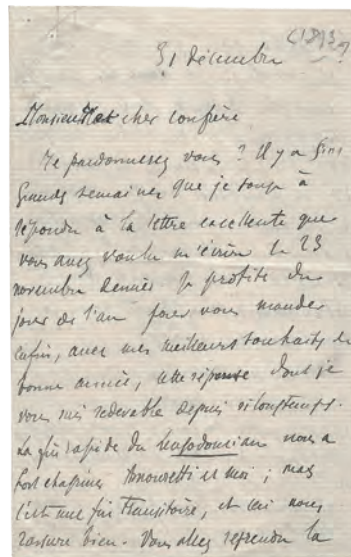 (1893?)
31 décembre
Monsieur et cher confrère
Me pardonnerez vous ? Il y a cinq
grandes semaines que je songe à
répondre à la lettre excellente que
vous avez voulu m'écrire le 23
novembre dernier. Je profite du
jour de l'an pour vous mander
enfin, avec mes meilleurs souhaits de
bonne année, cette réponse dont je
vous suis redevable depuis si longtemps.
La fin rapide du nous a
fort chagrinés Amouretti et moi ; mais
c'est une fin transitoire, et ceci nous
rassure bien. Vous allez reprendre la